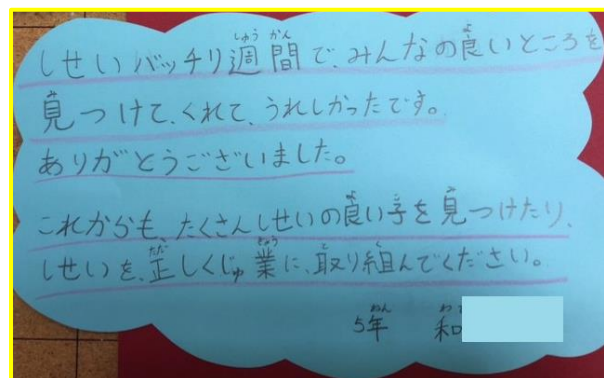 しせいバッチリ週間で、みんなの良いところを
見つけて、くれて、うれしかったです。
ありがとうございました。
これからも、たくさんしせいの良い子を見つけたり、
しせいを、正しくじゅ業に、取り組んでください。
5年 和